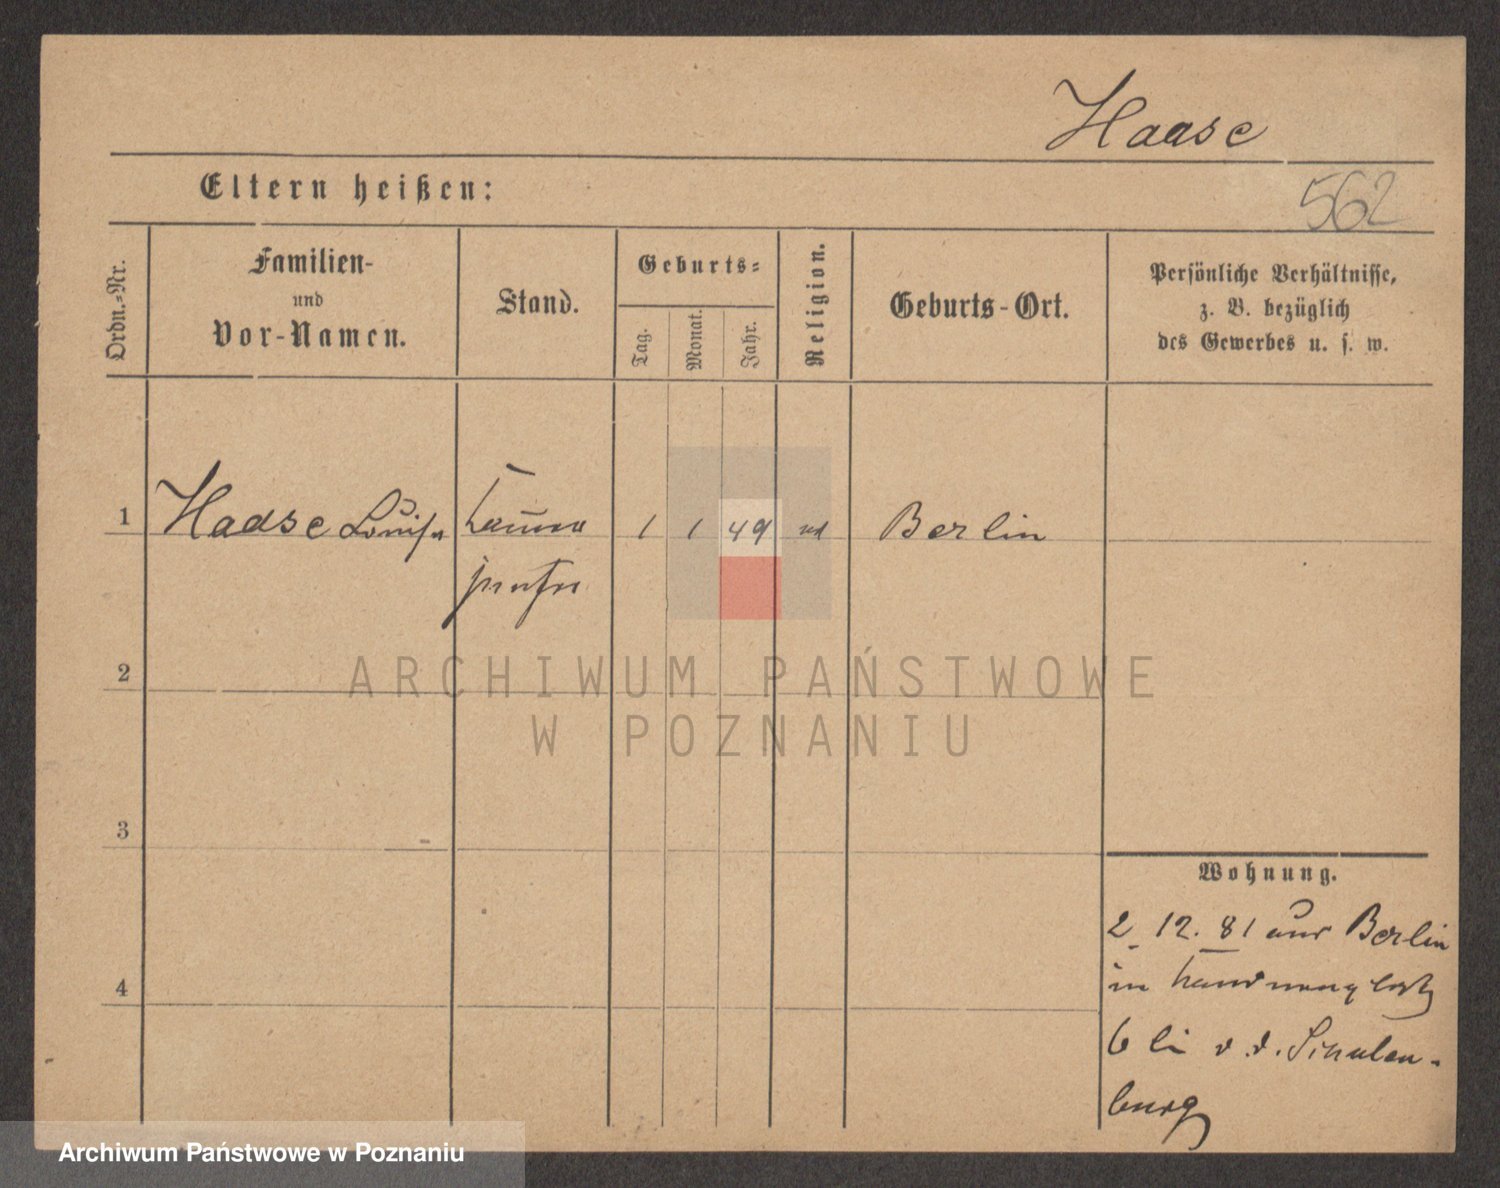 Haase
Eltern heißen:
562
Ordn.-Nr.
Familien-
und
Vor-Namen.
Stand.
Geburts-
Tag.
Monat.
Jahr.
Religion.
Geburts-Ort.
Persönliche Verhältnisse,
z. B. bezüglich
des Gewerbes u. s. w.
1 Haase Louise 1 1 49 Berlin
2
3
4
Wohnung.
2. 12. 81 aus Berlin
in
6 bei v. d. Schulen-
burg
ARCHIWUM PAŃSTWOWE
W POZNANIU
Archiwum Państwowe w Poznaniu